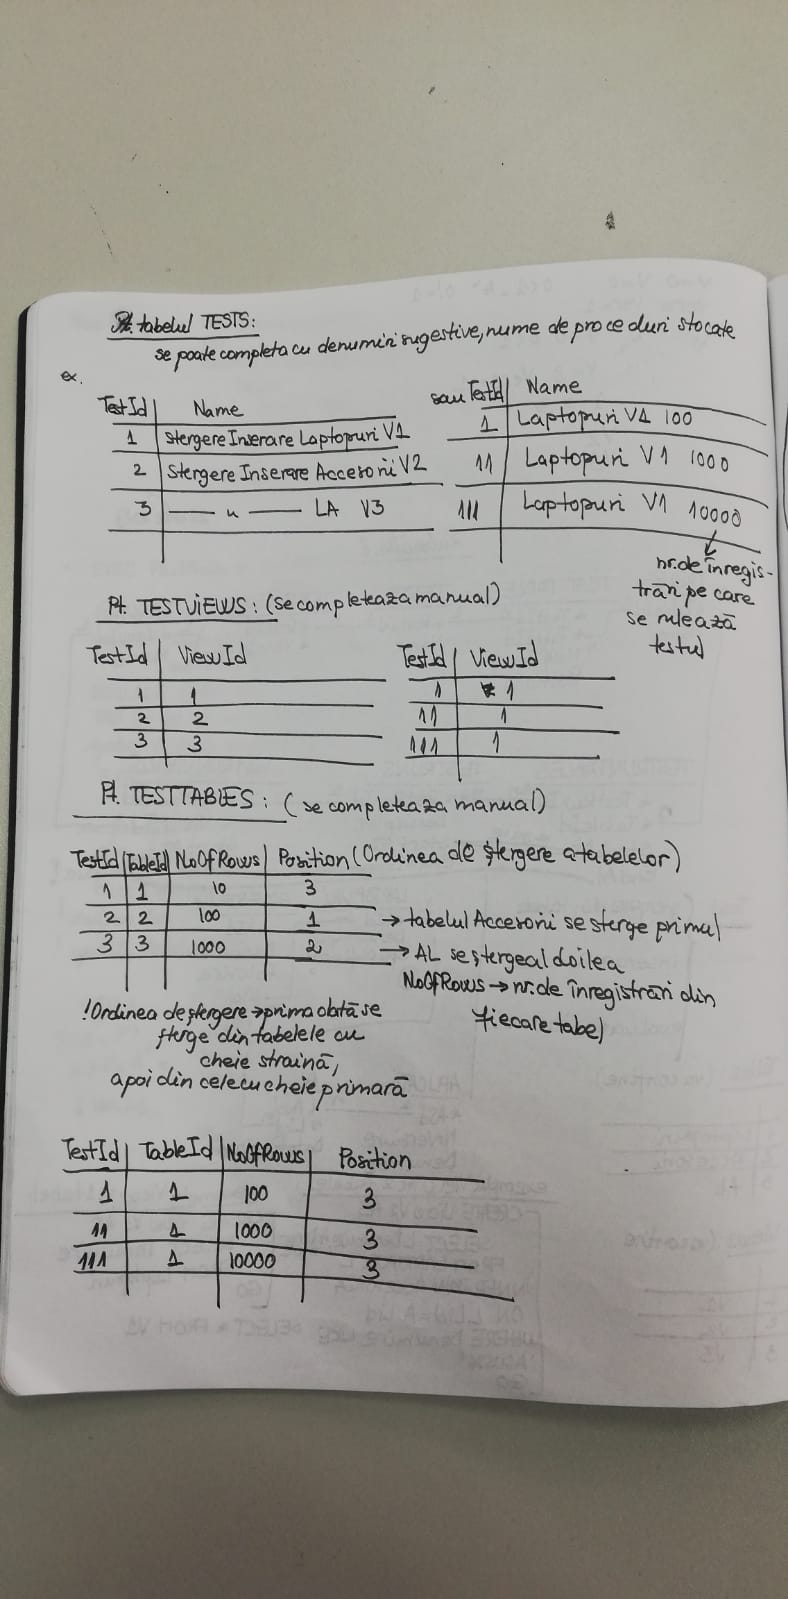 Pt. tabelul TESTS:
se poate completa cu denumiri sugestive, nume de proceduri stocate
ex.
TestId | Name
1 | Stergere Inserare Laptopuri V1
2 | Stergere Inserare Accesorii V2
3 | —— u —— LA V3
sau TestId | Name
1 | Laptopuri V1 100
11 | Laptopuri V1 1000
111 | Laptopuri V1 10000
nr. de înregis-
trări pe care
se rulează
testul
Pt. TESTVIEWS: (se completeaza manual)
TestId | ViewId
1 | 1
2 | 2
3 | 3
TestId | ViewId
1 | 1
11 | 1
111 | 1
Pt. TESTTABLES: (se completeaza manual)
TestId | TableId | NoOfRows | Position (Ordinea de ștergere a tabelelor)
1 | 1 | 10 | 3
2 | 2 | 100 | 1 → tabelul Accesorii se sterge primul
3 | 3 | 1000 | 2 → AL se șterge al doilea
NoOfRows → nr. de înregistrări din
fiecare tabel
!Ordinea de ștergere → prima dată se
șterge din tabelele cu
cheie străină,
apoi din cele cu cheie primară
TestId | TableId | NoOfRows | Position
1 | 1 | 100 | 3
11 | 1 | 1000 | 3
111 | 1 | 10000 | 3